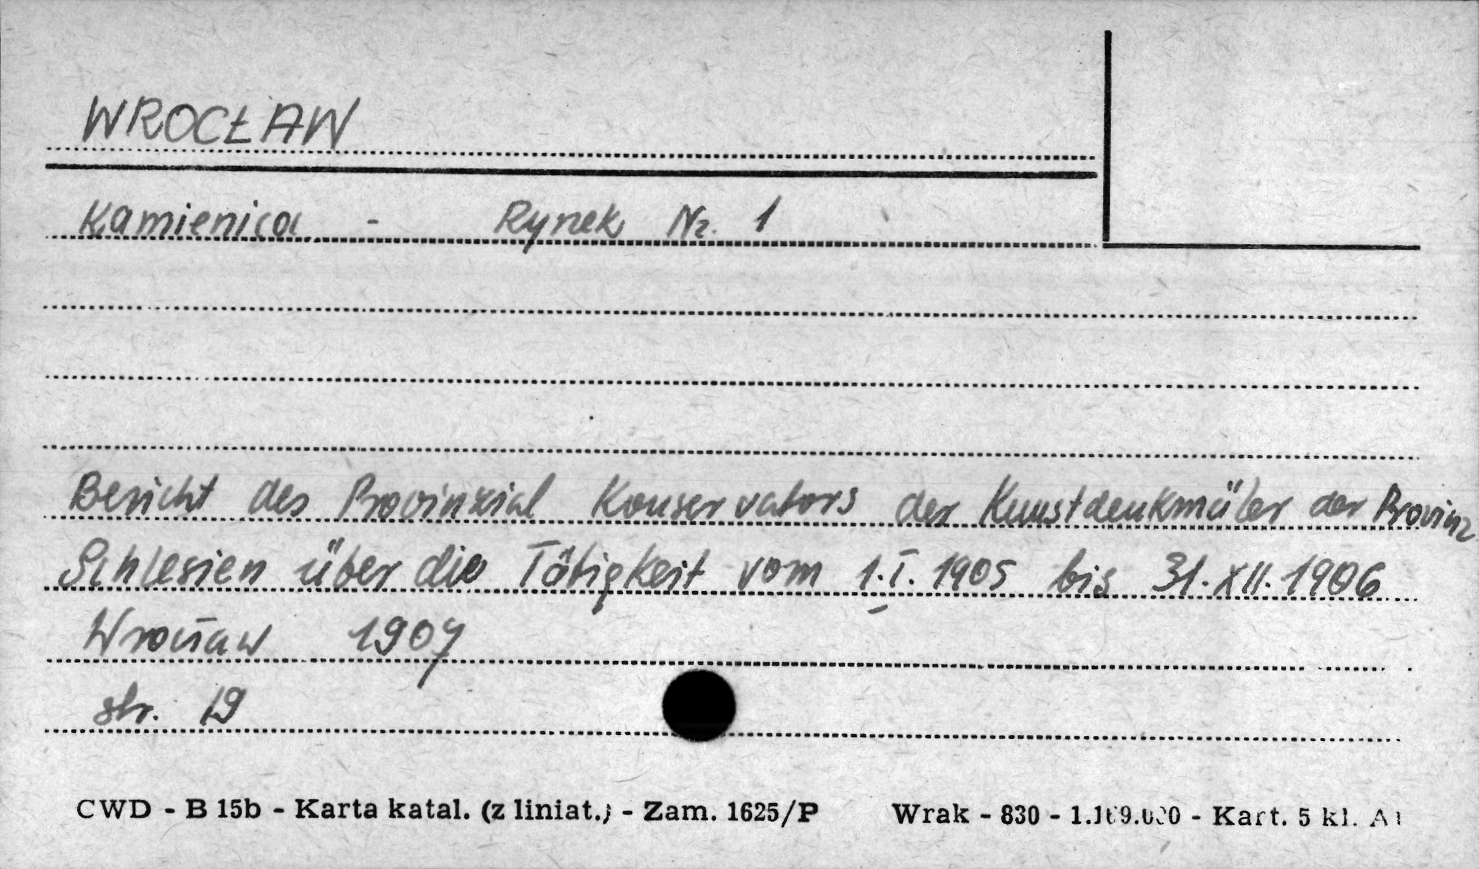 WROCŁAW
Kamienica - Rynek Nr. 1
Bericht des Provinzial Konservators der Kunstdenkmäler der Provinz
Schlesien über die Tätigkeit vom 1.I. 1905 bis 31.XII.1906
Wrocław 1907
str. 19
CWD - B 15b - Karta katal. (z liniat.) - Zam. 1625/P Wrak - 830 - Kart. 5 kl.